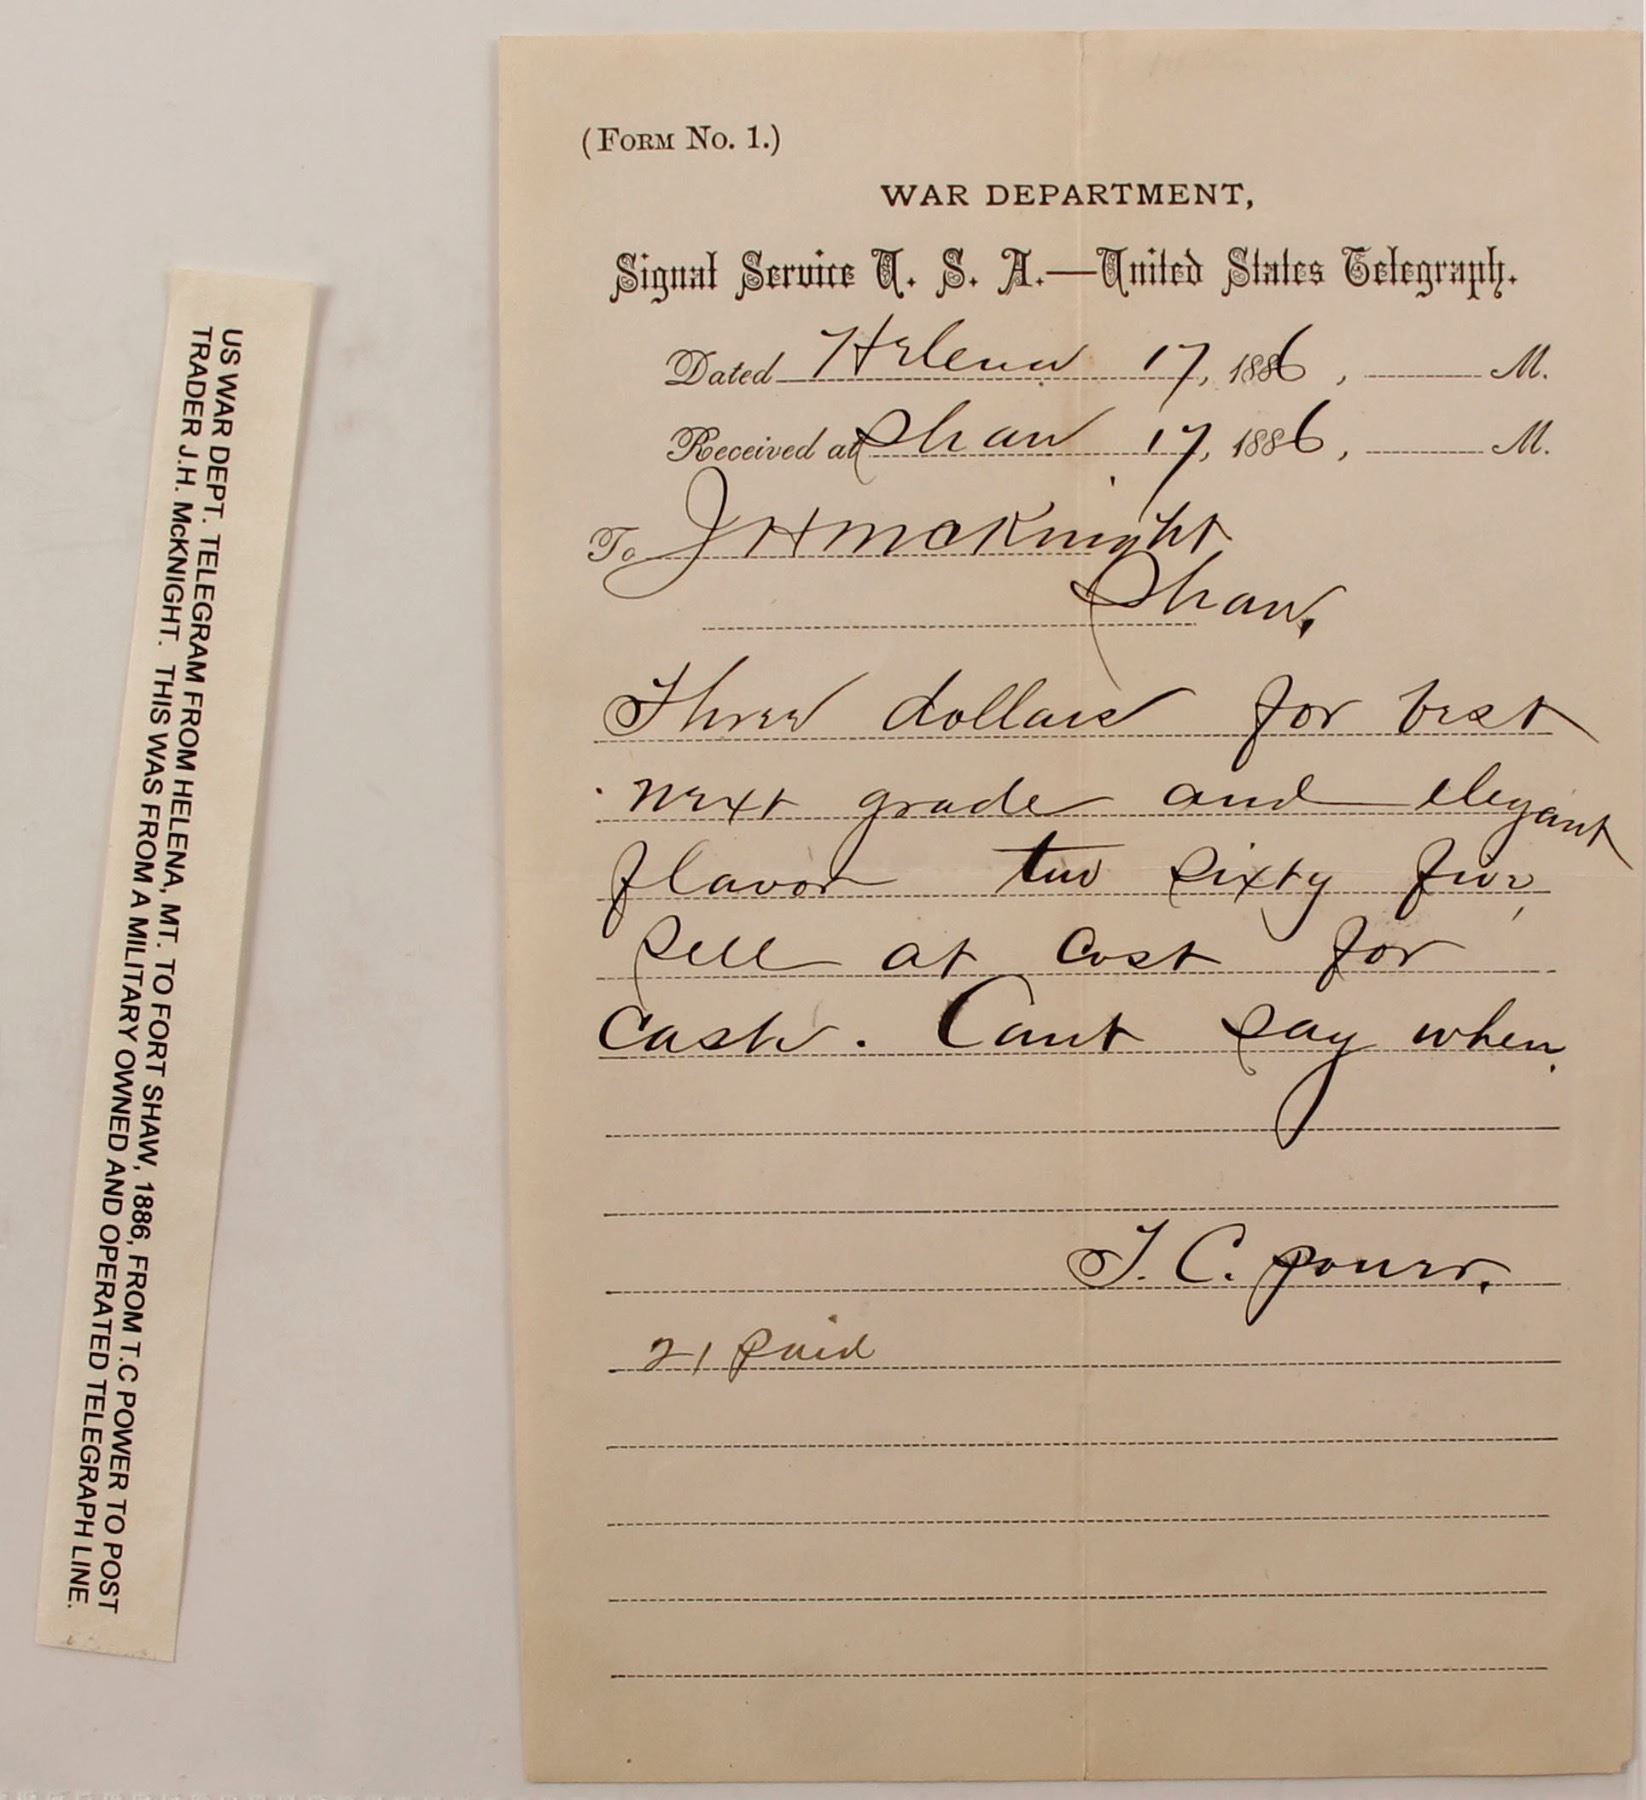 US WAR DEPT. TELEGRAM FROM HELENA, MT. TO FORT SHAW, 1886, FROM T.C POWER TO POST
TRADER J.H. McKNIGHT. THIS WAS FROM A MILITARY OWNED AND OPERATED TELEGRAPH LINE.
(FORM No. 1.)
WAR DEPARTMENT,
Signal Service U. S. A.—United States Telegraph.
Dated Helena 17, 1886, M.
Received at Shaw 17, 1886, M.
To J H McKnight
Shaw.
Three dollars for best
next grade and elegant
flavor two sixty five,
sell at cost for
cash. Cant say when.
T. C. power.
21 paid